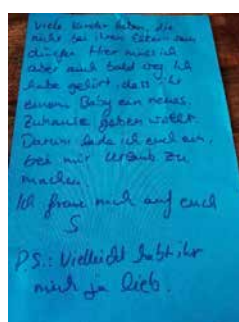 Viele Kinder leben, die
nicht bei ihren Eltern sein
dürfen. Hier muss ich
aber auch bald weg. Ich
habe gehört, dass ihr
einem Baby ein neues
Zuhause geben wollt.
Darum lade ich euch ein,
bei mir Urlaub zu
machen.
Ich freue mich auf euch
S
P.S.: Vielleicht habt ihr
mich ja lieb.